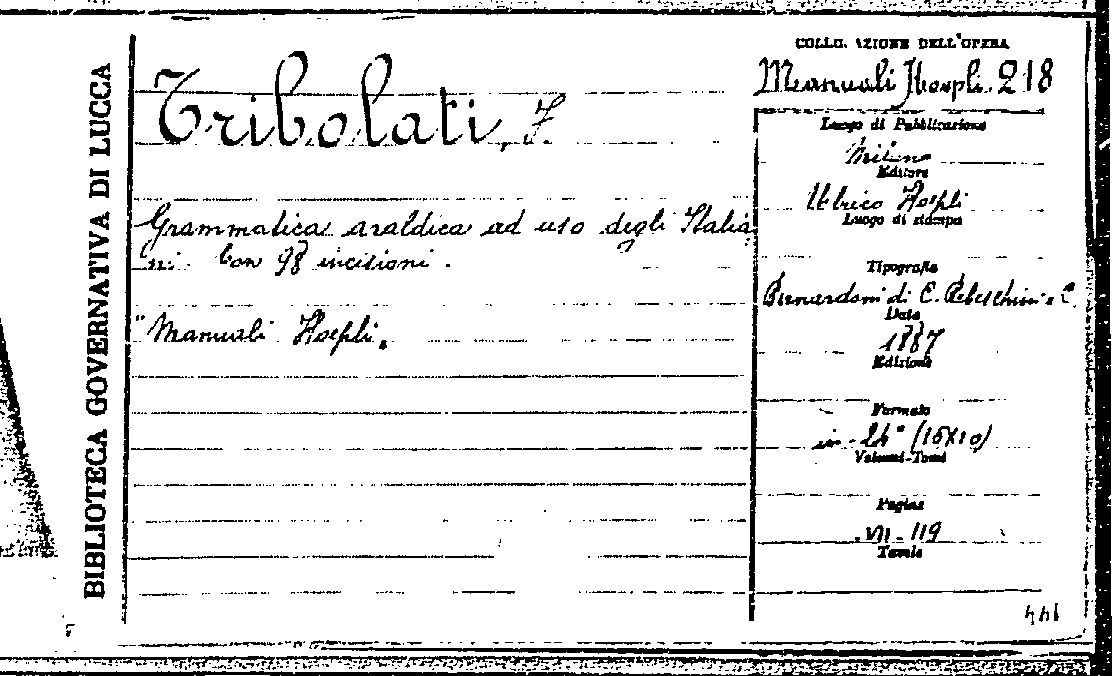 BIBLIOTECA GOVERNATIVA DI LUCCA
Tribolati, F.
Grammatica araldica ad uso degli Italia
ni. Con 98 incisioni.
"Manuali Hoepli"
COLLO. AZIONE DELL'OPERA
Manuali Hoepli. 218
Luogo di Pubblicazione
Milano
Editore
Ulrico Hoepli
Luogo di stampa
Tipografia
Bernardoni di C. Rebeschini e C.
Data
1887
Edizione
Formato
in-24° (15X10)
Volumi-Tomi
Pagine
VII-119
Tavole